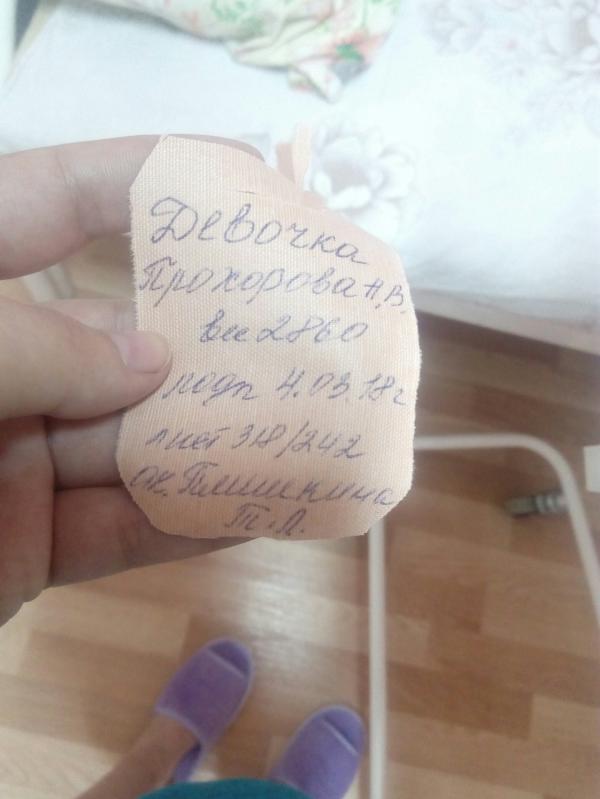 Девочка
Прохорова Н.В.
вес 2860
родн 4.03.18г
лист 318/242
ак. Плишкина
Т.Л.